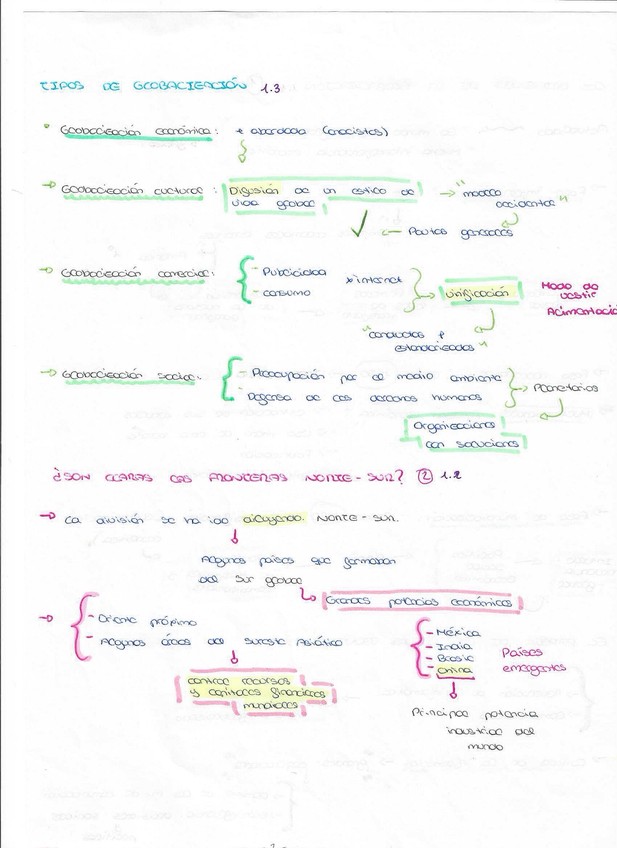 TIPOS DE GLOBALIZACIÓN 1.3
Globalización económica: * abordada (anocistos)
→ Globalización cultural: Difusión de un estilo de vida global → "modelo occidental"
✓ ← Pautas generales
→ Globalización comercial: - Publicidad
- Consumo
* internet
→ Unificación
Modo de vestir
Alimentación
"conductas estandarizadas"
→ Globalización social: - Preocupación por el medio ambiente
- Defensa de los derechos humanos
→ Planetarios
Organizaciones con soluciones
¿SON CLARAS LAS FRONTERAS NORTE-SUR? ② 1.2
→ La división se ha ido diluyendo. NORTE-SUR.
Algunos países que formaban
del Sur global
Grandes potencias económicas
→ - Oriente próximo
- Algunas áreas del sureste Asiático
control recursos
y capitales financieros
mundiales
- México
- India
- Brasil
- China
Países
emergentes
Principal potencia
industrial del
mundo